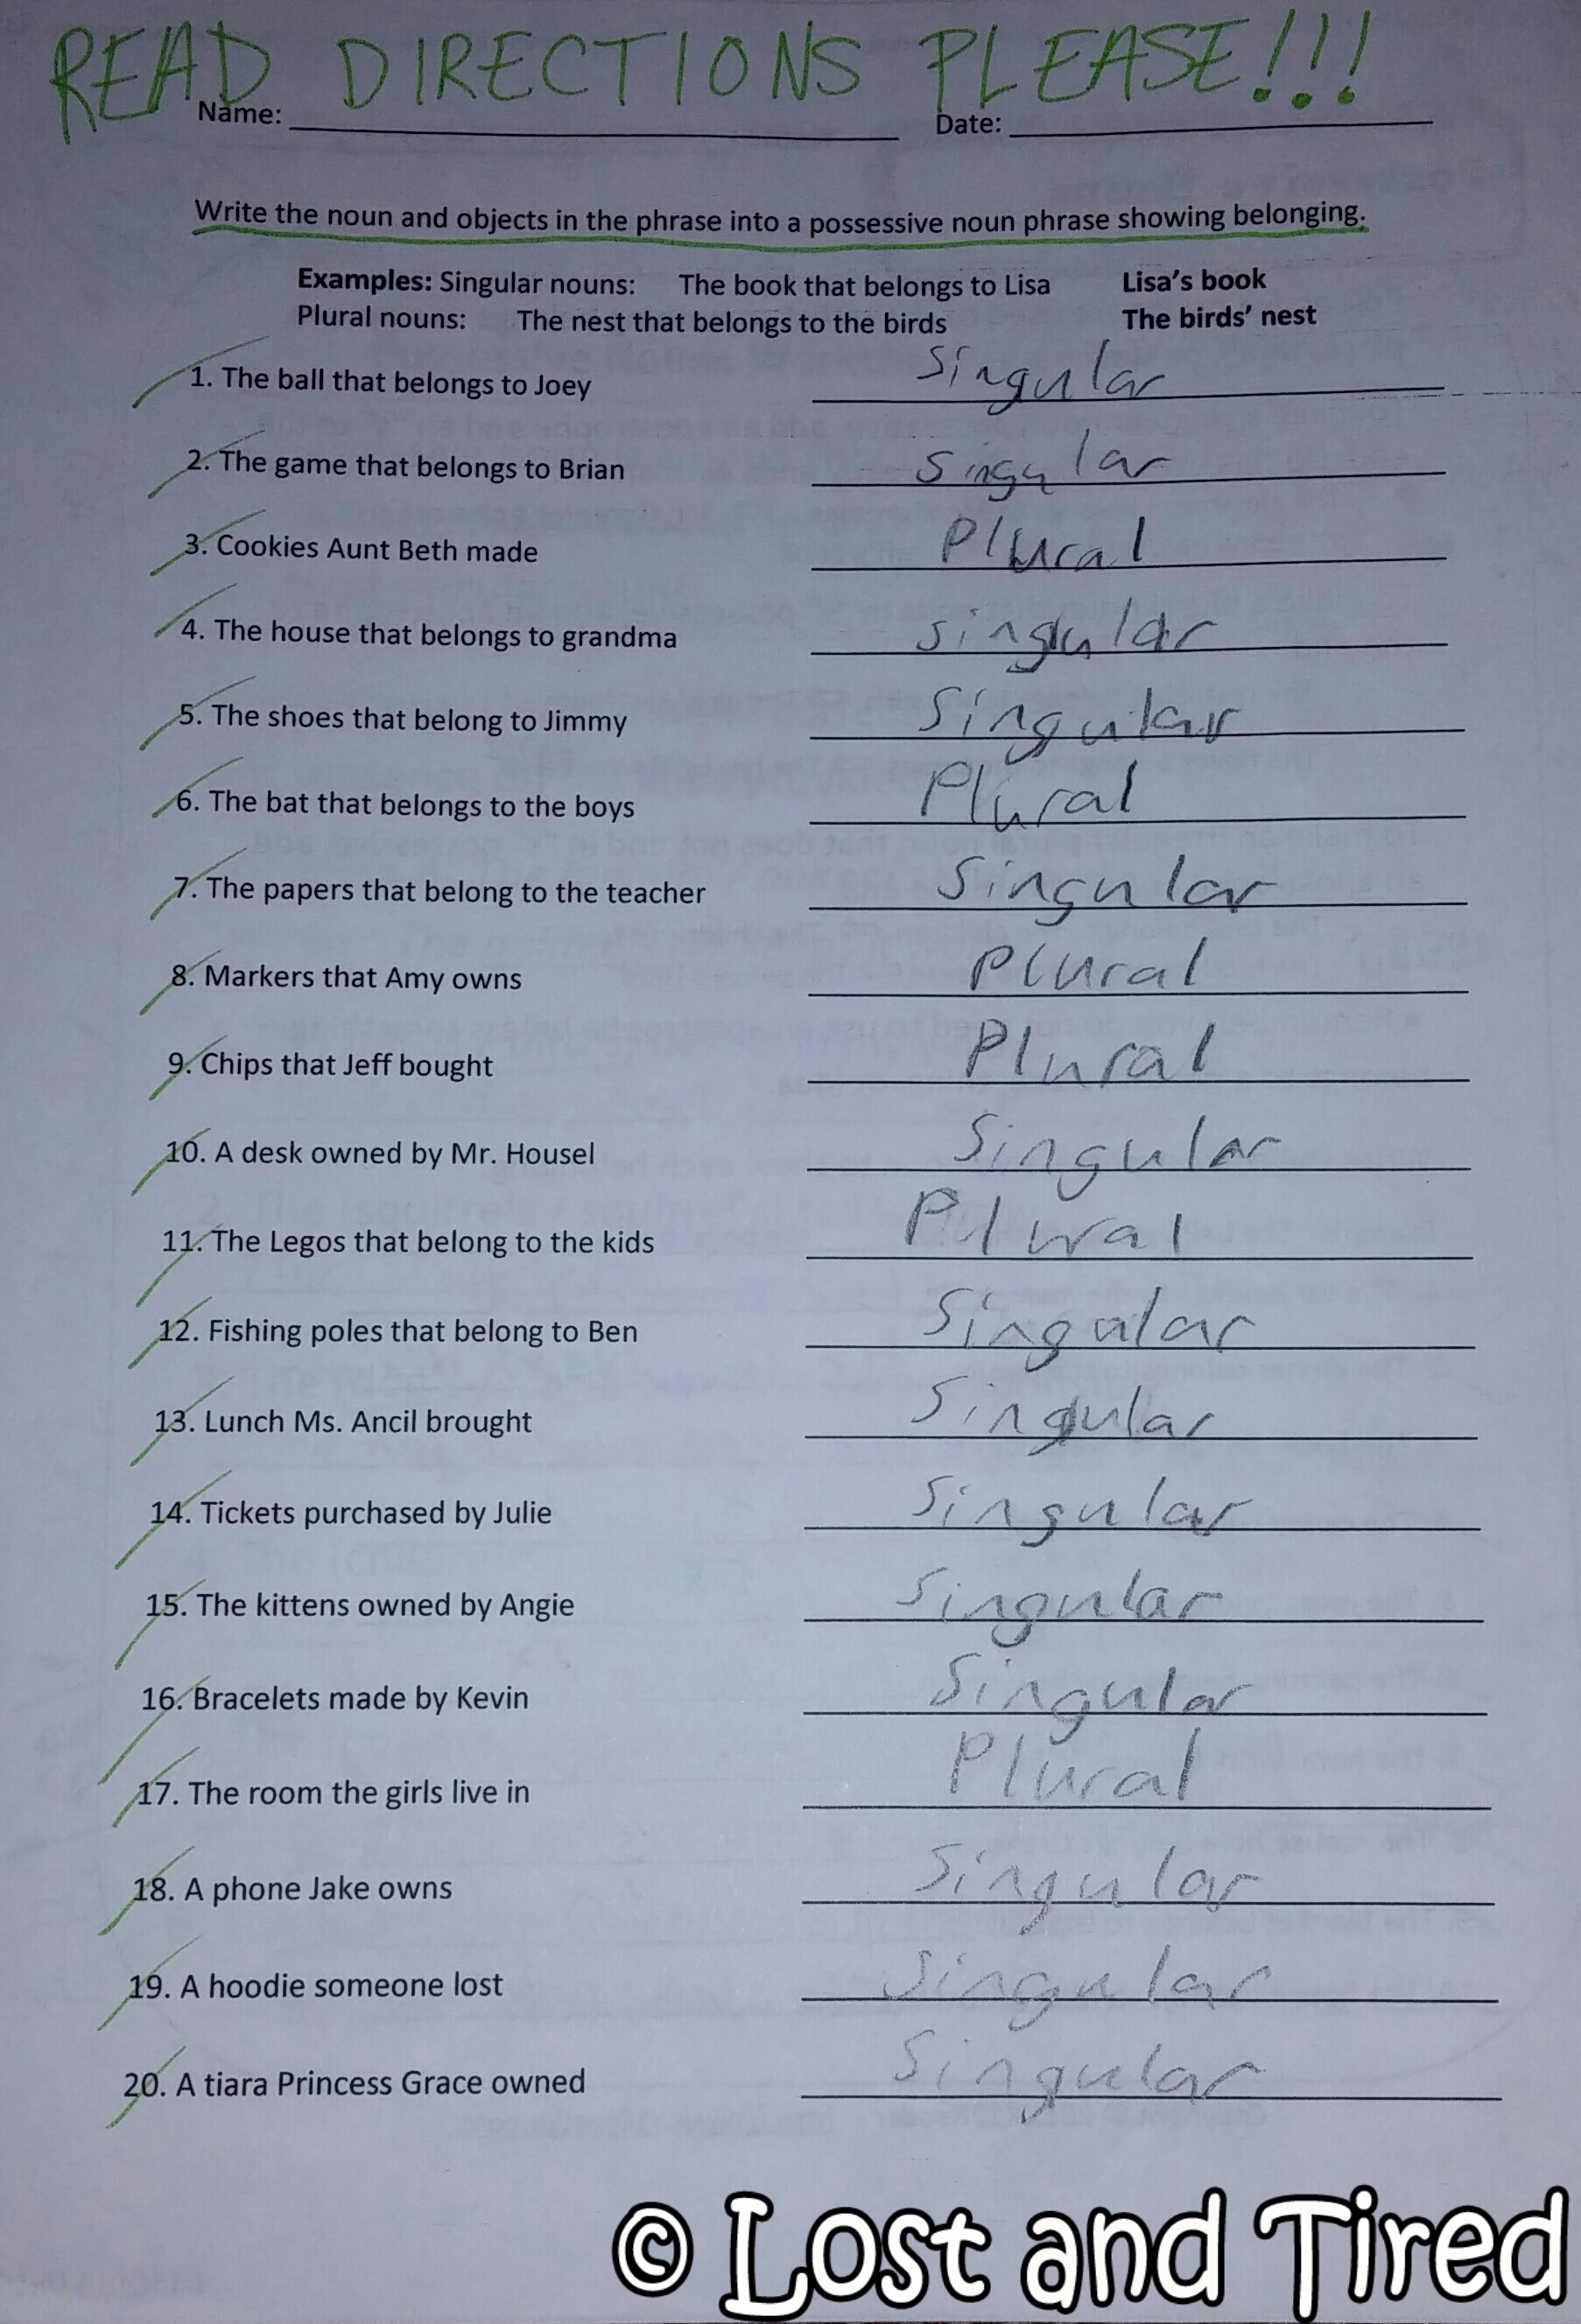 READ DIRECTIONS PLEASE!!!
Name: Date:
Write the noun and objects in the phrase into a possessive noun phrase showing belonging.
Examples: Singular nouns: The book that belongs to Lisa Lisa's book
Plural nouns: The nest that belongs to the birds The birds' nest
1. The ball that belongs to Joey Singular
2. The game that belongs to Brian Singular
3. Cookies Aunt Beth made Plural
4. The house that belongs to grandma Singular
5. The shoes that belong to Jimmy Singular
6. The bat that belongs to the boys Plural
7. The papers that belong to the teacher Singular
8. Markers that Amy owns Plural
9. Chips that Jeff bought Plural
10. A desk owned by Mr. Housel Singular
11. The Legos that belong to the kids Plural
12. Fishing poles that belong to Ben Singular
13. Lunch Ms. Ancil brought Singular
14. Tickets purchased by Julie Singular
15. The kittens owned by Angie Singular
16. Bracelets made by Kevin Singular
17. The room the girls live in Plural
18. A phone Jake owns Singular
19. A hoodie someone lost Singular
20. A tiara Princess Grace owned Singular
© Lost and Tired